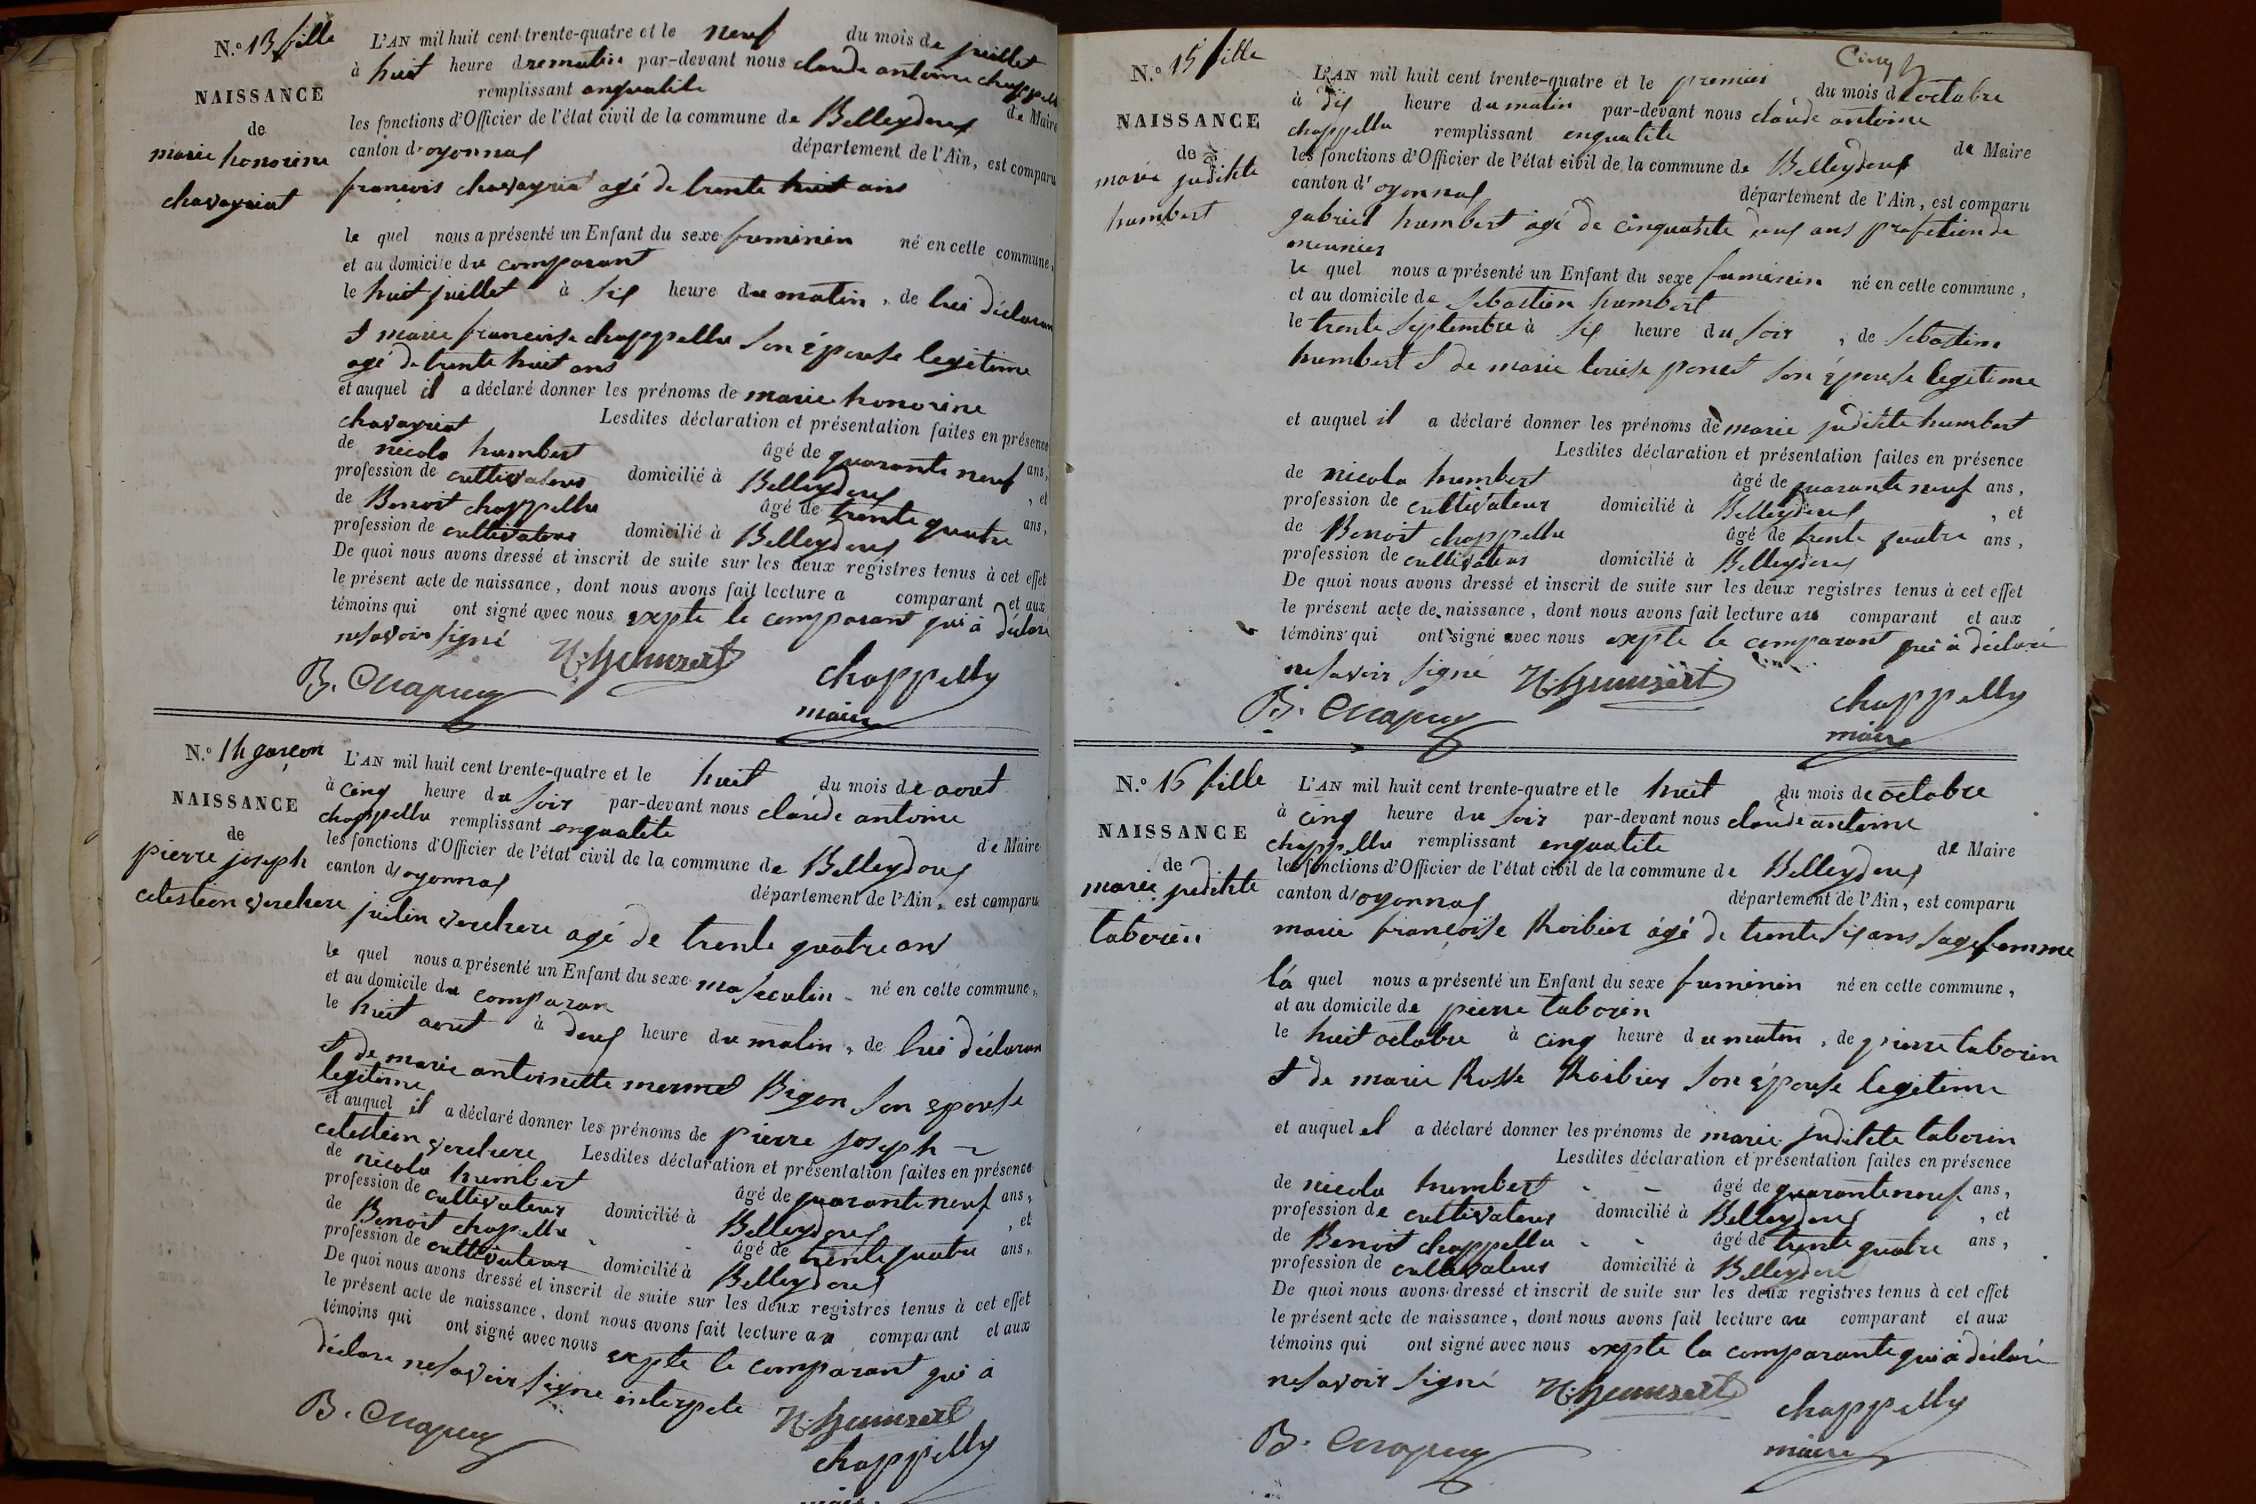 N.º 13 fille
NAISSANCE
de
marie honorine
chavayriat
L'AN mil huit cent trente-quatre et le neuf du mois de juillet
à huit heure dre matin par-devant nous claude antoine chappellu
remplissant enqualité de Maire
les fonctions d'Officier de l'état civil de la commune de Belleydoux
canton d'oyonnax département de l'Ain, est comparu
francois chavayriat agé de trente huit ans
le quel nous a présenté un Enfant du sexe feminin né en cette commune,
et au domicile du comparant
le huit juillet à six heure du matin, de lui déclarant
et marie francoise chappellu son épouse legitime
agé de trente huit ans
et auquel il a déclaré donner les prénoms de marie honorine
chavayriat Lesdites déclaration et présentation faites en présence
de nicola humbert âgé de quarante neuf ans,
profession de cultivateur domicilié à Belleydoux, et
de Benoit chappellu âgé de trente quatre ans,
profession de cultivateur domicilié à Belleydoux
De quoi nous avons dressé et inscrit de suite sur les deux registres tenus à cet effet
le présent acte de naissance, dont nous avons fait lecture a comparant et aux
témoins qui ont signé avec nous expte le comparant qui à déclaré
nesavoir signé
N. humbert
B. Chapuy
chappelly
maire
N.º 14 garcon
NAISSANCE
de
pierre joseph
celestien verchere
L'AN mil huit cent trente-quatre et le huit du mois de aout
à cinq heure du soir par-devant nous claude antoine
chappellu remplissant enqualité de Maire
les fonctions d'Officier de l'état civil de la commune de Belleydoux
canton d'oyonnax département de l'Ain, est comparu
juilin verchere agé de trente quatre ans
le quel nous a présenté un Enfant du sexe masculin né en cette commune,
et au domicile du comparan
le huit aout à deux heure du matin, de lui déclaran
et de marie antoinette mermet Bigon son epouse
legitime
et auquel il a déclaré donner les prénoms de pierre joseph
celestien verchere Lesdites déclaration et présentation faites en présence
de nicola humbert âgé de quarante neuf ans,
profession de cultivateur domicilié à Belleydoux, et
de Benoit chapellu âgé de trente quatre ans,
profession de cultivateur domicilié à Belleydoux
De quoi nous avons dressé et inscrit de suite sur les deux registres tenus à cet effet
le présent acte de naissance, dont nous avons fait lecture au comparant et aux
témoins qui ont signé avec nous expte le comparant qui à
déclare nesavoir signe enterpete
N. humbert
B. Chapuy
chappelly
maire
Cinq
N.º 15 fille
NAISSANCE
de
marie judithte
humbert
L'AN mil huit cent trente-quatre et le premier du mois d'octobre
à dix heure du matin par-devant nous claude antoine
chappellu remplissant enqualité de Maire
les fonctions d'Officier de l'état civil de la commune de Belleydoux
canton d'oyonnax département de l'Ain, est comparu
gabriel humbert agé de cinquante neuf ans profetion de
meunier
le quel nous a présenté un Enfant du sexe feminin né en cette commune,
et au domicile de sebastien humbert
le trente septembre à six heure du soir, de sebastien
humbert et de marie louise poncet son épouse legitime
et auquel il a déclaré donner les prénoms de marie judithte humbert
Lesdites déclaration et présentation faites en présence
de nicola humbert âgé de quarante neuf ans,
profession de cultivateur domicilié à Belleydoux, et
de Benoit chappellu âgé de trente quatre ans,
profession de cultivateur domicilié à Belleydoux
De quoi nous avons dressé et inscrit de suite sur les deux registres tenus à cet effet
le présent acte de naissance, dont nous avons fait lecture au comparant et aux
témoins qui ont signé avec nous expte le comparant qui à déclaré
nesavoir signé
N. humbert
B. Chapuy
chappelly
maire
N.º 16 fille
NAISSANCE
de
marie judithte
taborin
L'AN mil huit cent trente-quatre et le huit du mois de octobre
à cinq heure du soir par-devant nous claude antoine
chappellu remplissant enqualité de Maire
les fonctions d'Officier de l'état civil de la commune de Belleydoux
canton d'oyonnax département de l'Ain, est comparu
marie francoise Roibier ágé de trente six ans sagefemme
la quel nous a présenté un Enfant du sexe feminin né en cette commune,
et au domicile de pierre taborin
le huit octobre à cinq heure du matin, de pierre taborin
et de marie Rosse Roibier son épouse legitime
et auquel el a déclaré donner les prénoms de marie judithte taborin
Lesdites déclaration et présentation faites en présence
de nicola humbert âgé de quarante neuf ans,
profession de cultivateur domicilié à Belleydoux, et
de Benoit chappellu âgé de trente quatre ans,
profession de cultivateur domicilié à Belleydoux
De quoi nous avons dressé et inscrit de suite sur les deux registres tenus à cet effet
le présent acte de naissance, dont nous avons fait lecture au comparant et aux
témoins qui ont signé avec nous expte la comparante qui à déclaré
nesavoir signé
N. humbert
B. Chapuy
chappelly
maire